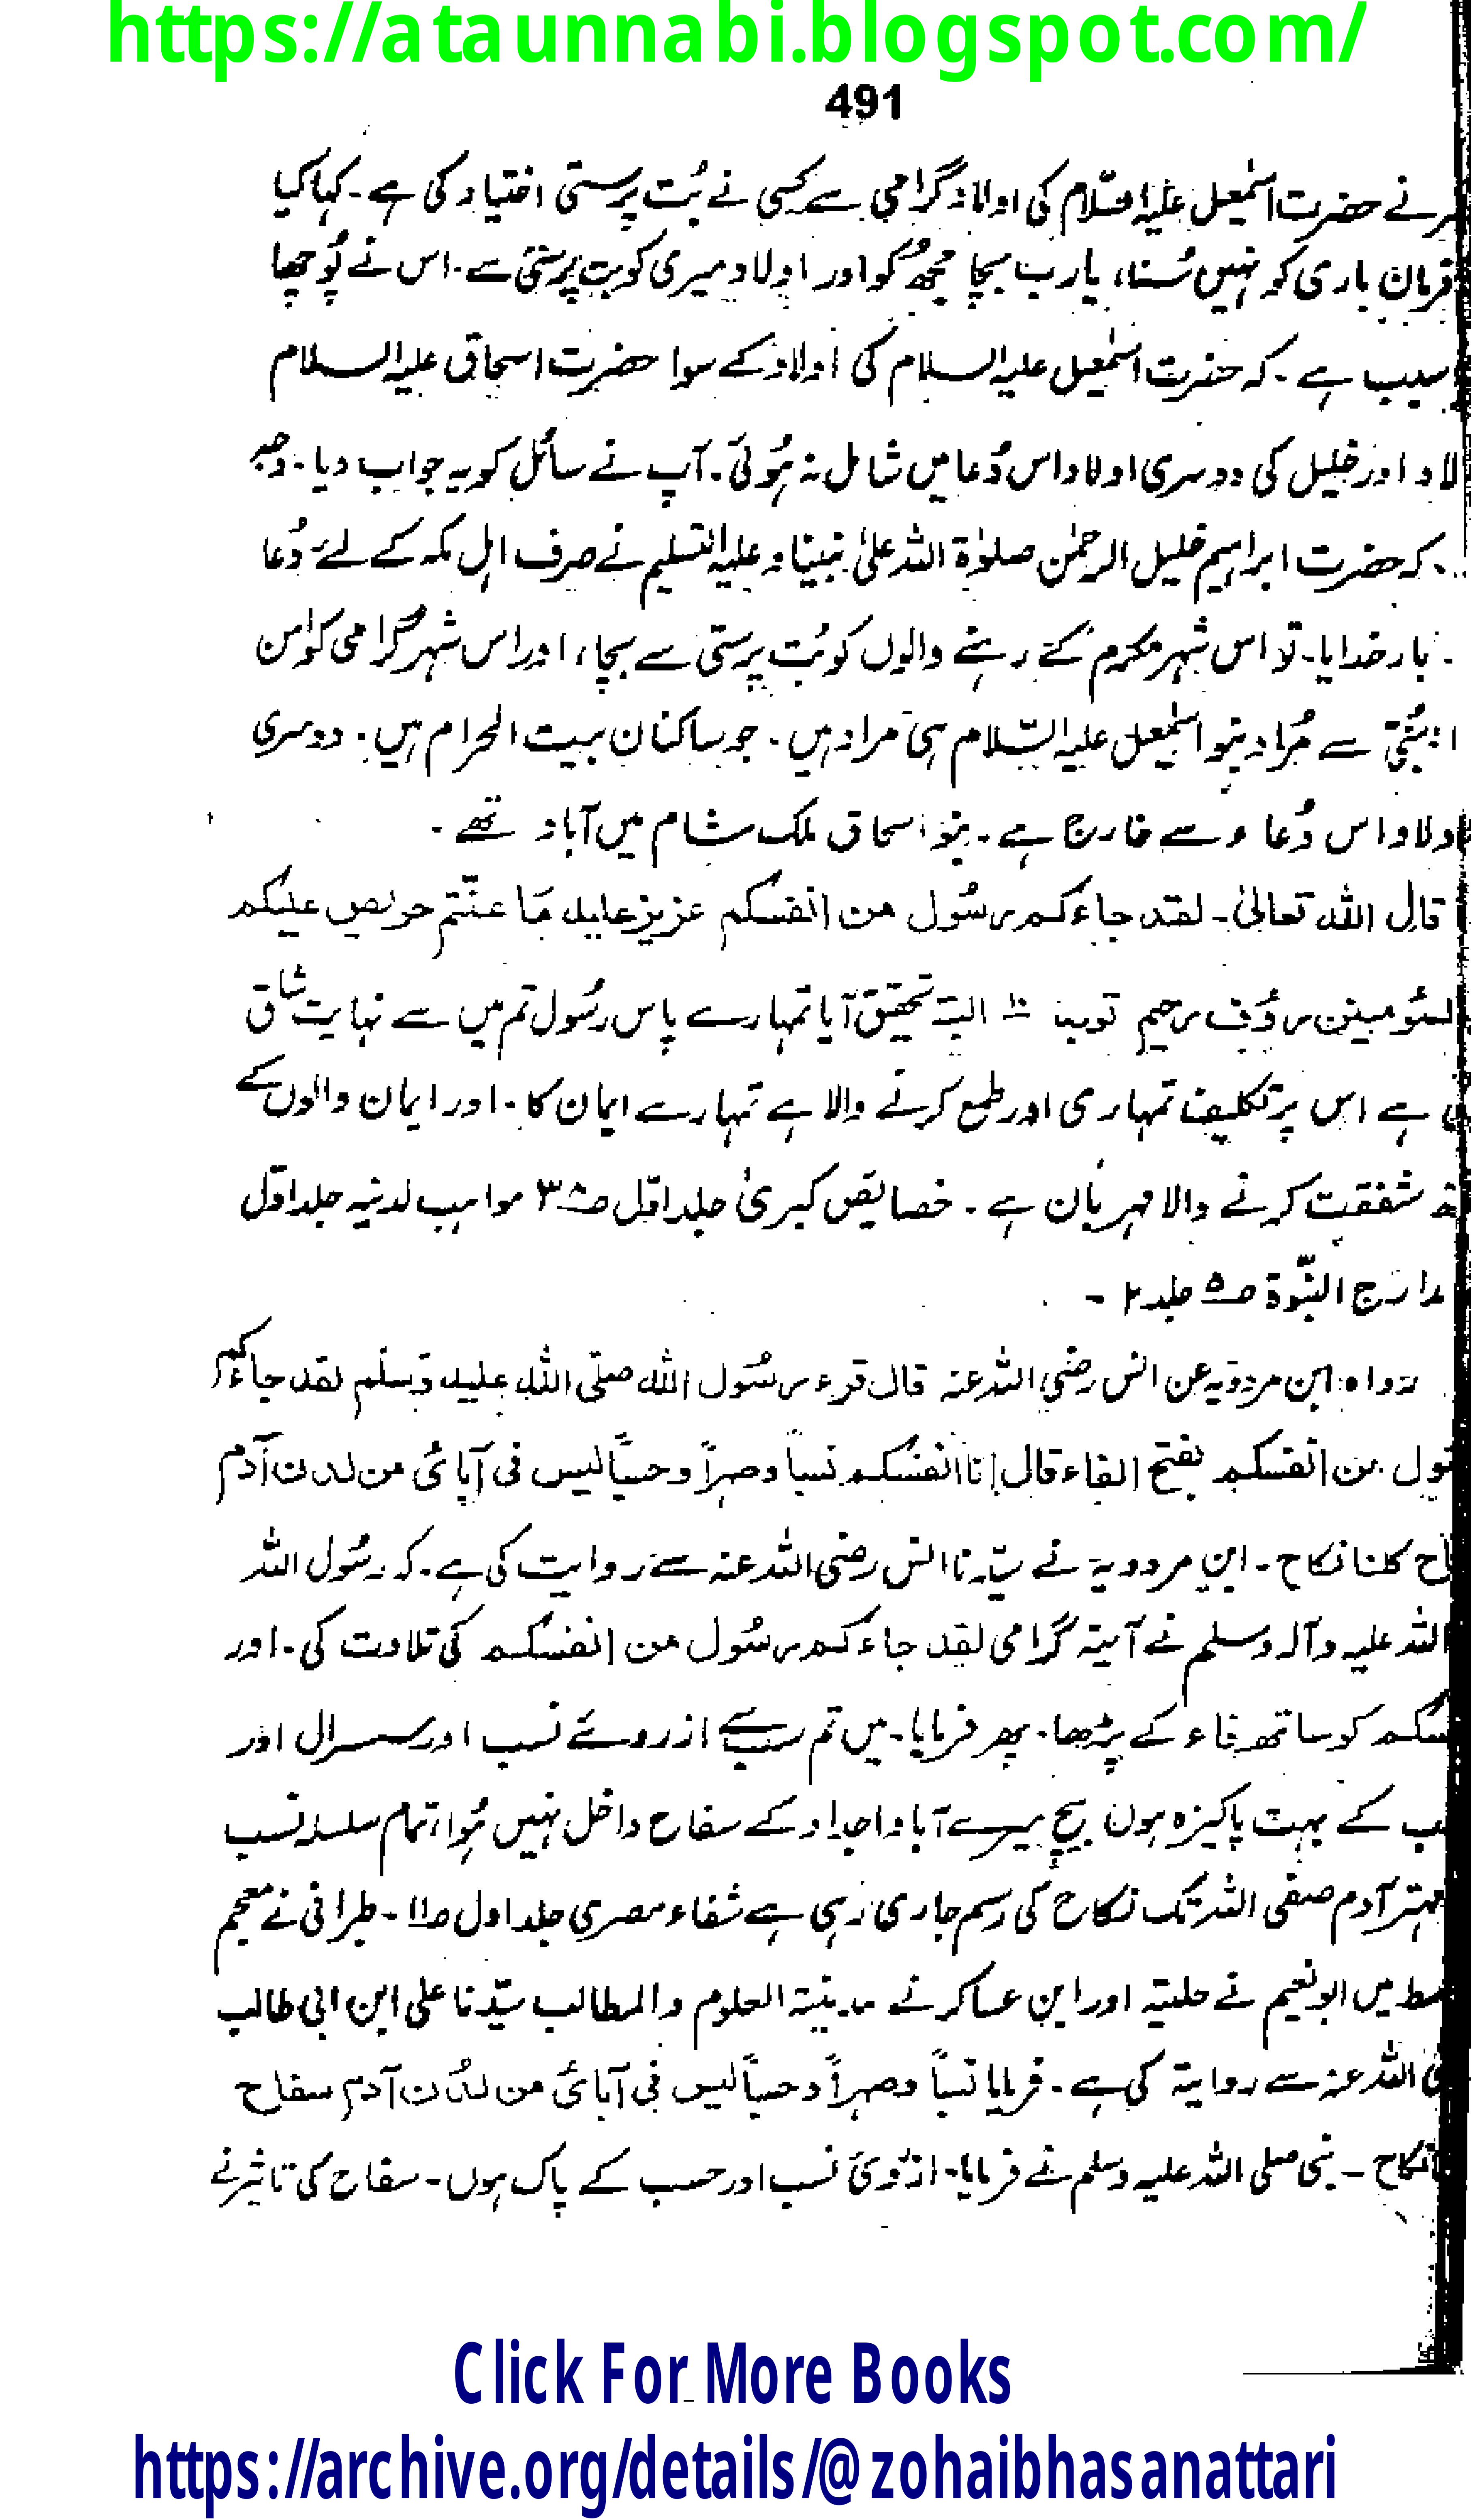 https://ataunnabi.blogspot.com/
491
نے حضرت اسمٰعیل علیہ السّلام کی اولاد گرامی سے کسی نے بُت پرستی اختیار کی ہے۔ کہا کیا
فرمان باری کو نہیں سُنا، یارب بچا مجھُ کو اور اولاد میری کو بت پرستی سے۔ اس نے پُوچھا
سبب ہے۔ کہ حضرت اسمٰعیل علیہ السلام کی اولاد کے سوا حضرت اسحاق علیہ السلام
لاد اور خلیل کی دوسری اولاد اس دُعا میں شامل نہ ہُوئی۔ آپ نے سائل کو یہ جواب دیا۔ وجہ
۔ کہ حضرت ابراہیم خلیل الرحمٰن صلوٰۃ اللہ علیٰ نبینا و علیہ التسلیم نے صرف اہل مکہ کے لئے دُعا
۔ بار خدایا۔ تو اس شہر مکرم کے رہنے والوں کو بُت پرستی سے بچا، اور اس شہر گرامی کو امن
سے مُراد بنو اسمٰعیل علیہ السّلام ہی مراد ہیں۔ جو ساکنان بیت الحرام ہیں۔ دوسری
اولاد اس دُعاء سے خارج ہے۔ بنو اسحاق ملک شام میں آباد تھے۔
قال اللہ تعالیٰ۔ لقد جاءکم رسُول من انفسکم عزیز علیہ مَا عنتّم حریص علیکم
المئومنین رؤف رحیم توبہ البتہ تحقیق آیا تمہارے پاس رسُول تم میں سے نہایت شاق
ہے اس پر تکلیف تمہاری اور طمع کرنے والا ہے تمہارے ایمان کا۔ اور ایمان والوں کے
شفقت کرنے والا مہربان ہے۔ خصایص کبریٰ جلد اوّل ص۳۸ مواہب لدنیہ جلد اوّل
مدارج النبّوۃ ص۵ جلد ۲۔
رواہ ابن مردویہ عن انس رضی اللہ عنہ قال قرء رسُول اللہ صلّی اللہ علیہ وَسلم لقد جاءکم
من انفسکم بفتح الفاء قال انا انفسُکم نسباً و صہراً و حسباً لیس فی آبائی من لدن آدم
کلنا نکاح۔ ابن مردویہ نے سیّدنا انس رضی اللہ عنہ سے روایت کی ہے۔ کہ رسُول اللہ
اللہ علیہ وآلہ وسلم نے آیتہ گرامی لقد جاءکم رسُول من انفسکم کی تلاوت کی۔ اور
کو ساتھ فاء کے پڑھا۔ پھر فرمایا۔ میں تم سب سے ازروئے نسب اور سسرال اور
کے بہت پاکیزہ ہوں بیچ میرے آباو اجداد کے سفاح داخل نہیں ہُوا، تمام سلسلہ نسب
مہتر آدم صفی اللہ تک نکاح کی رسم جاری رہی ہے شفاء مصری جلد اول ص۱۱۔ طبرانی نے معجم
میں ابو نعیم نے حلیتہ اور ابن عساکر نے مدینتہ العلوم والمطالب سیّدنا علی ابن ابی طالب
اللہ عنہ سے روایتہ کی ہے۔ فرمایا نسباً وصہراً وحسباً لیس فی آبائی من لدُن آدم سفاح
نکاح۔ نبی صلی اللہ علیہ وسلم نے فرمایا۔ ازرُوئے نسب اور حسب کے پاک ہوں۔ سفاح کی تاثیر نے
Click For More Books
https://archive.org/details/@zohaibhasanattari